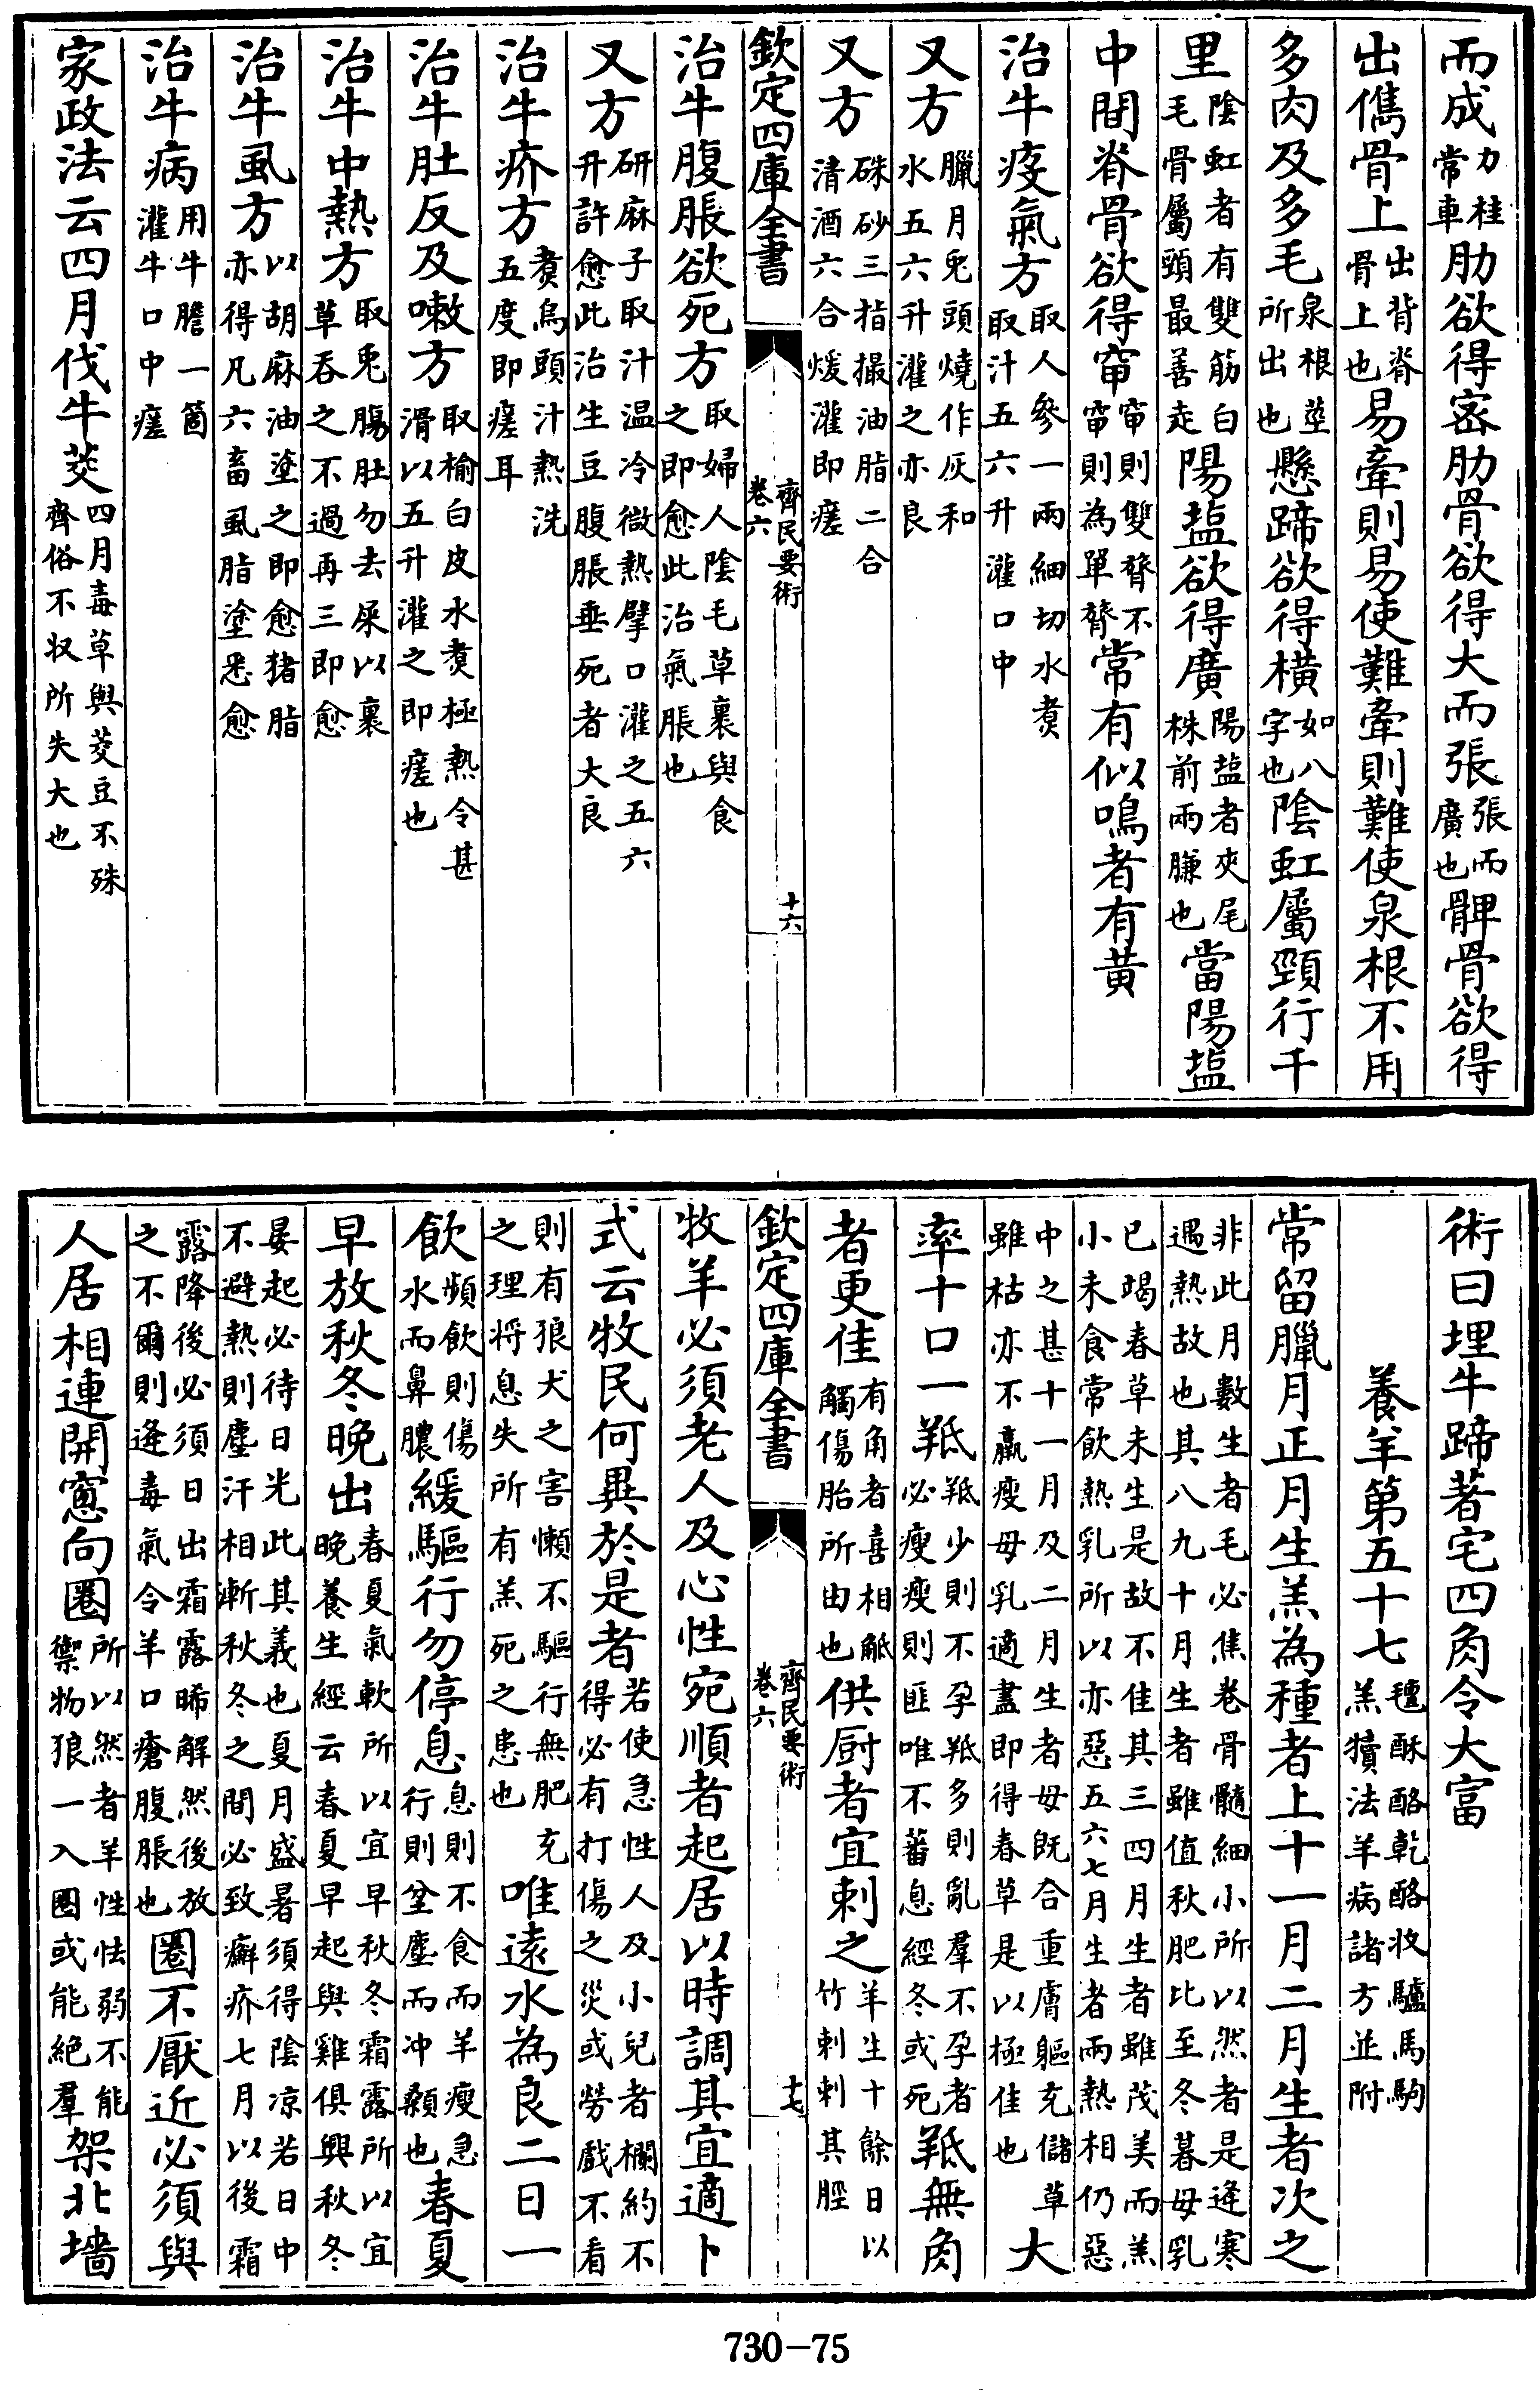 而成力桂常車肋欲得宻肋骨欲得大而張張而廣也髀骨欲得
出儁骨上出背脊骨上也易牽則易使難牽則難使泉根不用
多肉及多毛泉根莖所出也懸蹄欲得橫如八字也陰虹屬頸行千
里陰虹者有雙筋白毛骨屬頸最善走陽塩欲得廣陽塩者夾尾株前兩膁也當陽塩
中間脊骨欲得窜窜則雙膂不窜則為單膂常有似鳴者有黄
治牛疫氣方取人參一兩細切水煑取汁五六升灌口中
又方臘月兎頭燒作灰和水五六升灌之亦良
又方硃砂三指撮油脂二合清酒六合煖灌即瘥
欽定四庫全書 齊民要術卷六 十六
治牛腹脹欲死方取婦人陰毛草裹與食之即愈此治氣脹也
又方研麻子取汁温冷微熱擘口灌之五六升許愈此治生豆腹脹垂死者大良
治牛疥方煑烏頭汁熱洗五度即瘥耳
治牛肚反及嗽方取榆白皮水煑極熱令甚滑以五升灌之即瘥也
治牛中熱方取兎膓肚勿去屎以裹草吞之不過再三即愈
治牛虱方以胡麻油塗之即愈猪脂亦得凡六畜虱脂塗悉愈
治牛病用牛膽一箇灌牛口中瘥
家政法云四月伐牛茭四月毒草與茭豆不殊齊俗不収所失大也
術曰埋牛蹄著宅四角令大富
養羊第五十七氊酥酪乾酪收驢馬駒羔犢法羊病諸方並附
常留臘月正月生羔為種者上十一月二月生者次之
非此月數生者毛必焦卷骨髓細小所以然者是逢寒遇熱故也其八九十月生者雖值秋肥比至冬暮母乳
已竭春草未生是故不佳其三四月生者雖茂美而羔小未食常飲熱乳所以亦惡五六七月生者兩熱相仍惡
中之甚十一月及二月生者母既含重膚軀充儲草雖枯亦不羸瘦母乳適盡即得春草是以極佳也大
率十口一羝羝少則不孕羝多則亂羣不孕者必瘦瘦則匪唯不蕃息經冬或死羝無角
者更佳有角者喜相觝觸傷胎所由也供厨者宜剌之羊生十餘日以竹剌剌其脛
欽定四庫全書 齊民要術卷六 十七
牧羊必須老人及心性宛順者起居以時調其宜適卜
式云牧民何異於是者若使急性人及小兒者欄約不得必有打傷之災或勞戲不看
則有狼犬之害懶不驅行無肥充之理将息失所有羔死之患也唯逺水為良二日一
飲頻飲則傷水而鼻膿緩驅行勿停息息則不食而羊瘦急行則坌塵而冲顙也春夏
早放秋冬晚出春夏氣軟所以宜早秋冬霜露所以宜晚養生經云春夏早起與雞俱興秋冬
晏起必待日光此其義也夏月盛暑須得陰凉若日中不避熱則塵汗相漸秋冬之間必致癬疥七月以後霜
露降後必須日出霜露晞解然後放之不爾則逢毒氣令羊口瘡腹脹也圈不厭近必須與
人居相連開窻向圈所以然者羊性怯弱不能禦物狼一入圈或能絶羣架北墻
730-75